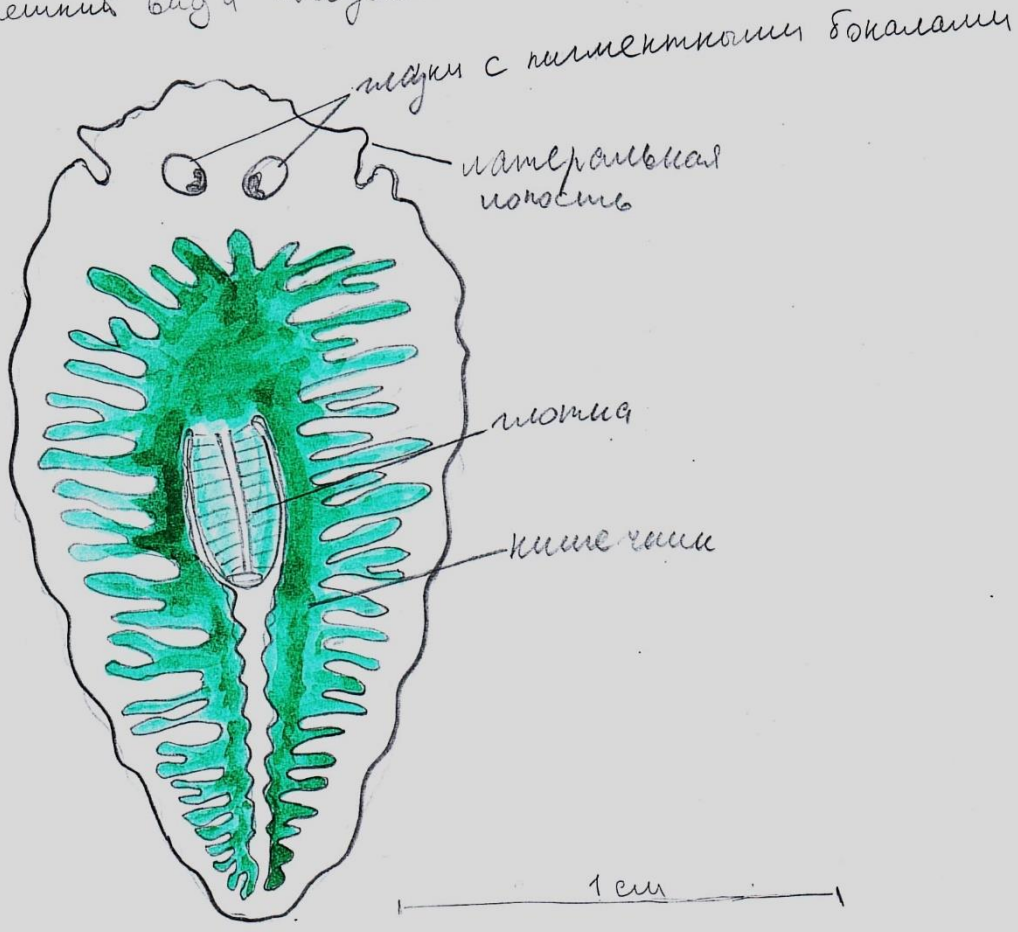 ешний вид и
глазки с пигментными бокалами
латеральная
лопость
глотка
кишечник
1 см